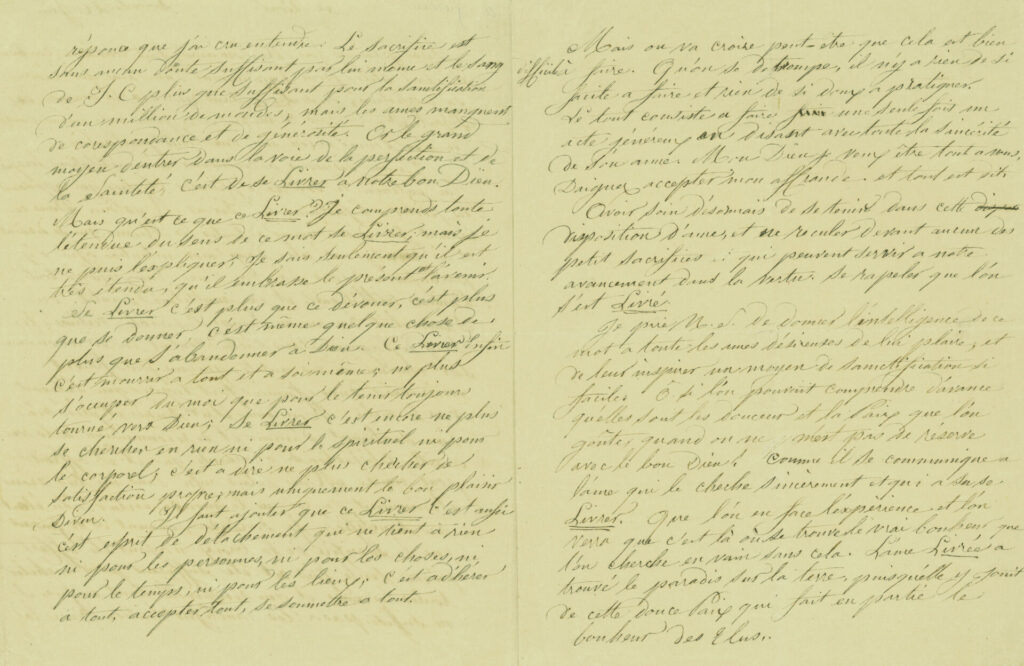 réponce que j'ai cru entendre. Le sacrifice est
sans aucun doute suffisant par lui même et le sang
de J. C plus que suffisant pour la sanctification
d'un million de mondes, mais les ames manquent
de corespondance et de générosité. Or le grand
moyen d'entrer dans la voie de la perfection et de
la Sainteté, c'est de se Livrer a notre bon Dieu.
Mais qu'est ce que ce Livrer? Je comprends toute
l'étendue du sens de ce mot se Livrer, mais je
ne puis l'expliquer. Je sais seulement qu'il est
très étendu, qu'il embrasse le présent et l'avenir.
Se Livrer c'est plus que ce dévouer, c'est plus
que se donner, c'est même quelque chose de
plus que s'abandonner a Dieu. Ce Livrer enfin
c'est mourrir a tout et a soi même, ne plus
s'occuper du moi que pour le tenir toujours
tourné vers Dieu; Se Livrer c'est encore ne plus
se chercher en rien ni pour le spirituel ni pour
le corporel, c'est a dire ne plus chercher de
satisfaction propre, mais uniquement le bon plaisir
Divin. Il faut ajouter que ce Livrer c'est aussi
c'est esprit de détachement qui ne tient a rien
ni pour les personnes, ni pour les choses, ni
pour le temps, ni pour les lieux, c'est adhérer
a tout, accepter tout, se soumettre a tout.
Mais on va croire peut-etre que cela est bien
difficile à faire. Qu'on se detrompe, il n'y a rien de si
facile a faire et rien de si doux a pratiquer.
Le tout consiste a faire une seule fois un
acte généreux en disant avec toute la sincérité
de son ame. Mon Dieu je veux être tout a vous,
Daignez accepter mon offrande. et tout est dit.
Avoir soin désormais de se tenir dans cette
disposition d'ame, et ne reculer devant aucun des
petit sacrifices qui peuvent servir a notre
avancement dans la vertu. se rapeler que l'on
s'est Livré
Je prie N. S. de donner l'intelligence de ce
mot a toute les ames désireuses de lui plaire, et
de leur inspirer un moyen de sanctification si
facile. O si l'on pouvait comprendre d'avance
quelles sont les douceur et la Paix que l'on
goute, quand on ne met pas de réserve
avec le bon Dieu! Comme il se communique a
l'ame qui le cherche sincèrement et qui a su se
Livrer. Que l'on en face l'expérience et l'on
verra que c'est là où se trouve le vrai bonheur que
l'on cherche en vain sans cela. L'ame Livrée a
trouvé le paradis sur la terre, puisqu'elle y jouit
de cette douce Paix qui fait en partie le
bonheur des Elus.